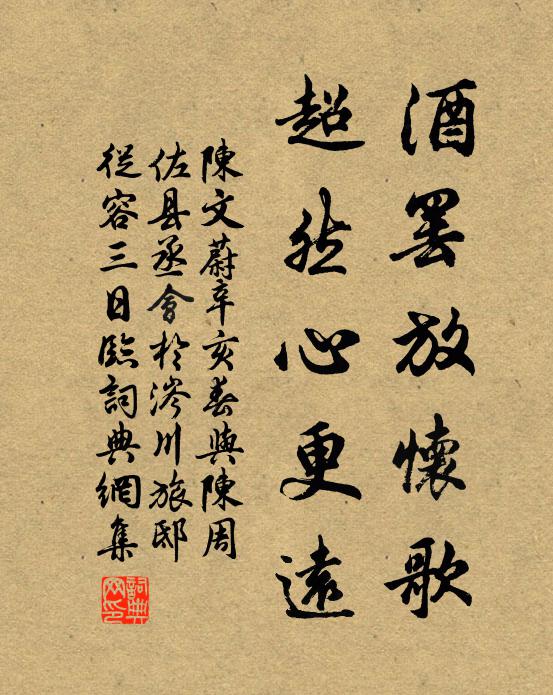 酒罢放懷歌
超然心更遠
陳文蔚辛亥春與陳周
佐县丞會於涔川旅邸
從容三日臨詞典網集
詞典网印